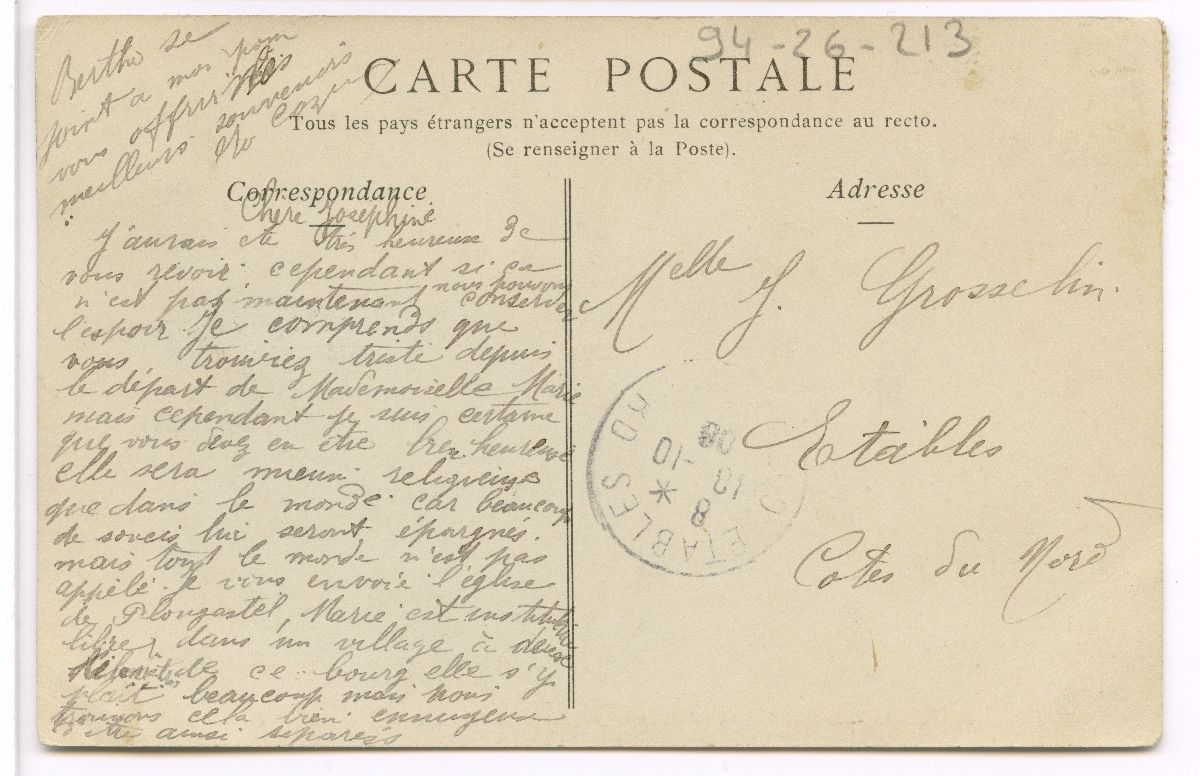 94-26-213
CARTE POSTALE
Tous les pays étrangers n'acceptent pas la correspondance au recto.
(Se renseigner à la Poste).
Correspondance
Adresse
Berthe se
joint a moi pour
vous offrir Nos
meilleurs souvenirs
Chere Josephine
J'aurais ete très heureuse de
vous revoir cependant si ce
n'est pas maintenant nous pouvons conserver
l'espoir Je comprends que
vous trouviez triste depuis
le départ de Mademoiselle Marie
mais cependant je suis certaine
que vous devez en être bien heureuse
elle sera mieux religieuse
que dans le monde car beaucoup
de soucis lui seront épargnés.
mais tout le monde n'est pas
appelé. Je vous envoie l'église
de Plougastel, Marie est institutrice
libre dans un village à deux
de ce bourg elle s'y
plaît beaucoup mais nous
trouvons cela bien ennuyeux
d'être ainsi séparées
Melle J. Grosselin.
Etables
Cotes du Nord
ETABLES DU
8
10 -10
08